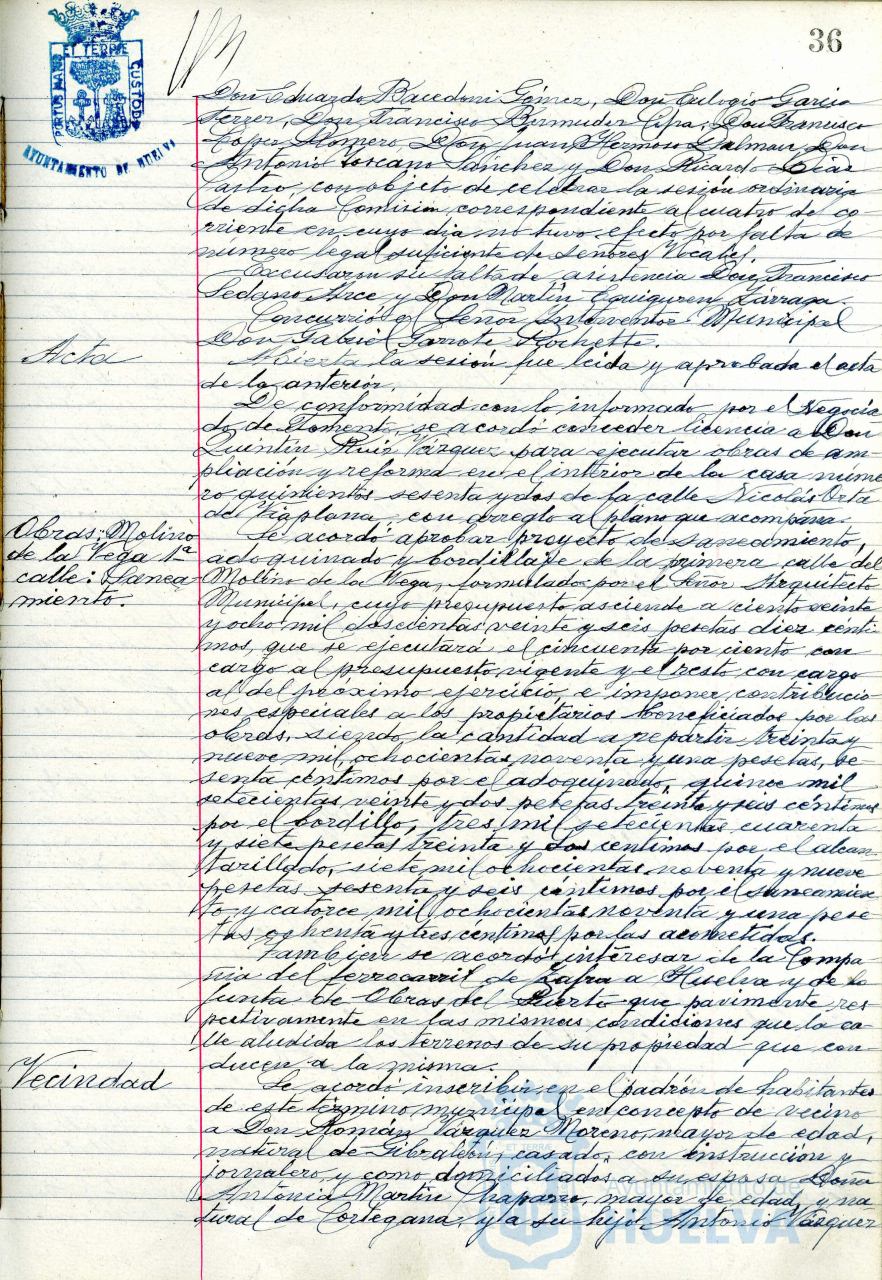 36
PORTUS MARIS ET TERRÆ CUSTODIA
AYUNTAMIENTO DE HUELVA
Don Eduardo Bacedoni Gómez, Don Eulogio Garcia
Ferrer, Don Francisco Bermudez Cifra, Don Francisco
López Romero, Don Juan Hermoso Dalmau, Don
Antonio Toscano Sánchez y Don Ricardo Diaz
Castro, con objeto de celebrar la sesión ordinaria
de dicha Comisión, correspondiente al cuatro de co-
rriente en cuyo dia no tuvo efecto por falta de
número legal suficiente de señores Vocales.
Excusaron su falta de asistencia Don Francisco
Sedano Arce y Don Martín Eguiguren Zárraga.
Concurrió el Señor Interventor Municipal
Don Gabriel Garrote Rochette.
Acta
Abierta la sesión fue leida y aprobada el acta
de la anterior.
De conformidad con lo informado por el Negocia
do de Fomento, se acordó conceder licencia a Don
Quintín Ruiz Vázquez para ejecutar obras de am-
pliación y reforma en el interior de la casa núme
ro quinientos sesenta y dos de la calle Nicolás Orta
de Viaplana, con arreglo al plano que acompaña.
Obras: Molino
de la Vega 1ª
calle: Sanea-
miento.
Se acordó aprobar proyecto de saneamiento,
adoquinado y bordillaje de la primera calle del
Molino de la Vega, formulados por el Señor Arquitecto
Municipal, cuyo presupuesto asciende a ciento veinte
y ocho mil doscientas veinte y seis pesetas diez cénti
mos, que se ejecutará el cincuenta por ciento con
cargo al presupuesto vigente y el resto con cargo
al del próximo ejercicio, e imponer contribucio
nes especiales a los propietarios beneficiados por las
obras, siendo la cantidad a repartir treinta y
nueve mil, ochocientas noventa y una pesetas, se-
senta céntimos por el adoquinado, quince mil
setecientas veinte y dos pesetas, treinta y seis céntimos
por el bordillo, tres mil setecientas cuarenta
y siete pesetas treinta y dos centimos por el alcan
tarillado, siete mil ochocientas noventa y nueve
pesetas sesenta y seis centimos por el saneamien
to y catorce mil ochocientas noventa y una pese
tas ochenta y tres centimos por las acometidas.
Tambien se acordó interesar de la Compa
ñia del ferrocarril de Zafra a Huelva y de la
Junta de Obras del Puerto que pavimente res
pectivamente en las mismas condiciones que la ca
lle aludida los terrenos de su propiedad que con
ducen a la misma.
Vecindad
Se acordó inscribir en el padrón de habitantes
de este término municipal en concepto de vecino
a Don Román Vázquez Moreno, mayor de edad,
natural de Gibraleón, casado, con instrucción y
jornalero, y como domiciliados a su esposa Doña
Antonia Martín Chaparro, mayor de edad, y na-
tural de Cortegana, y a su hijo Antonio Vázquez
Ayuntamiento de
HUELVA